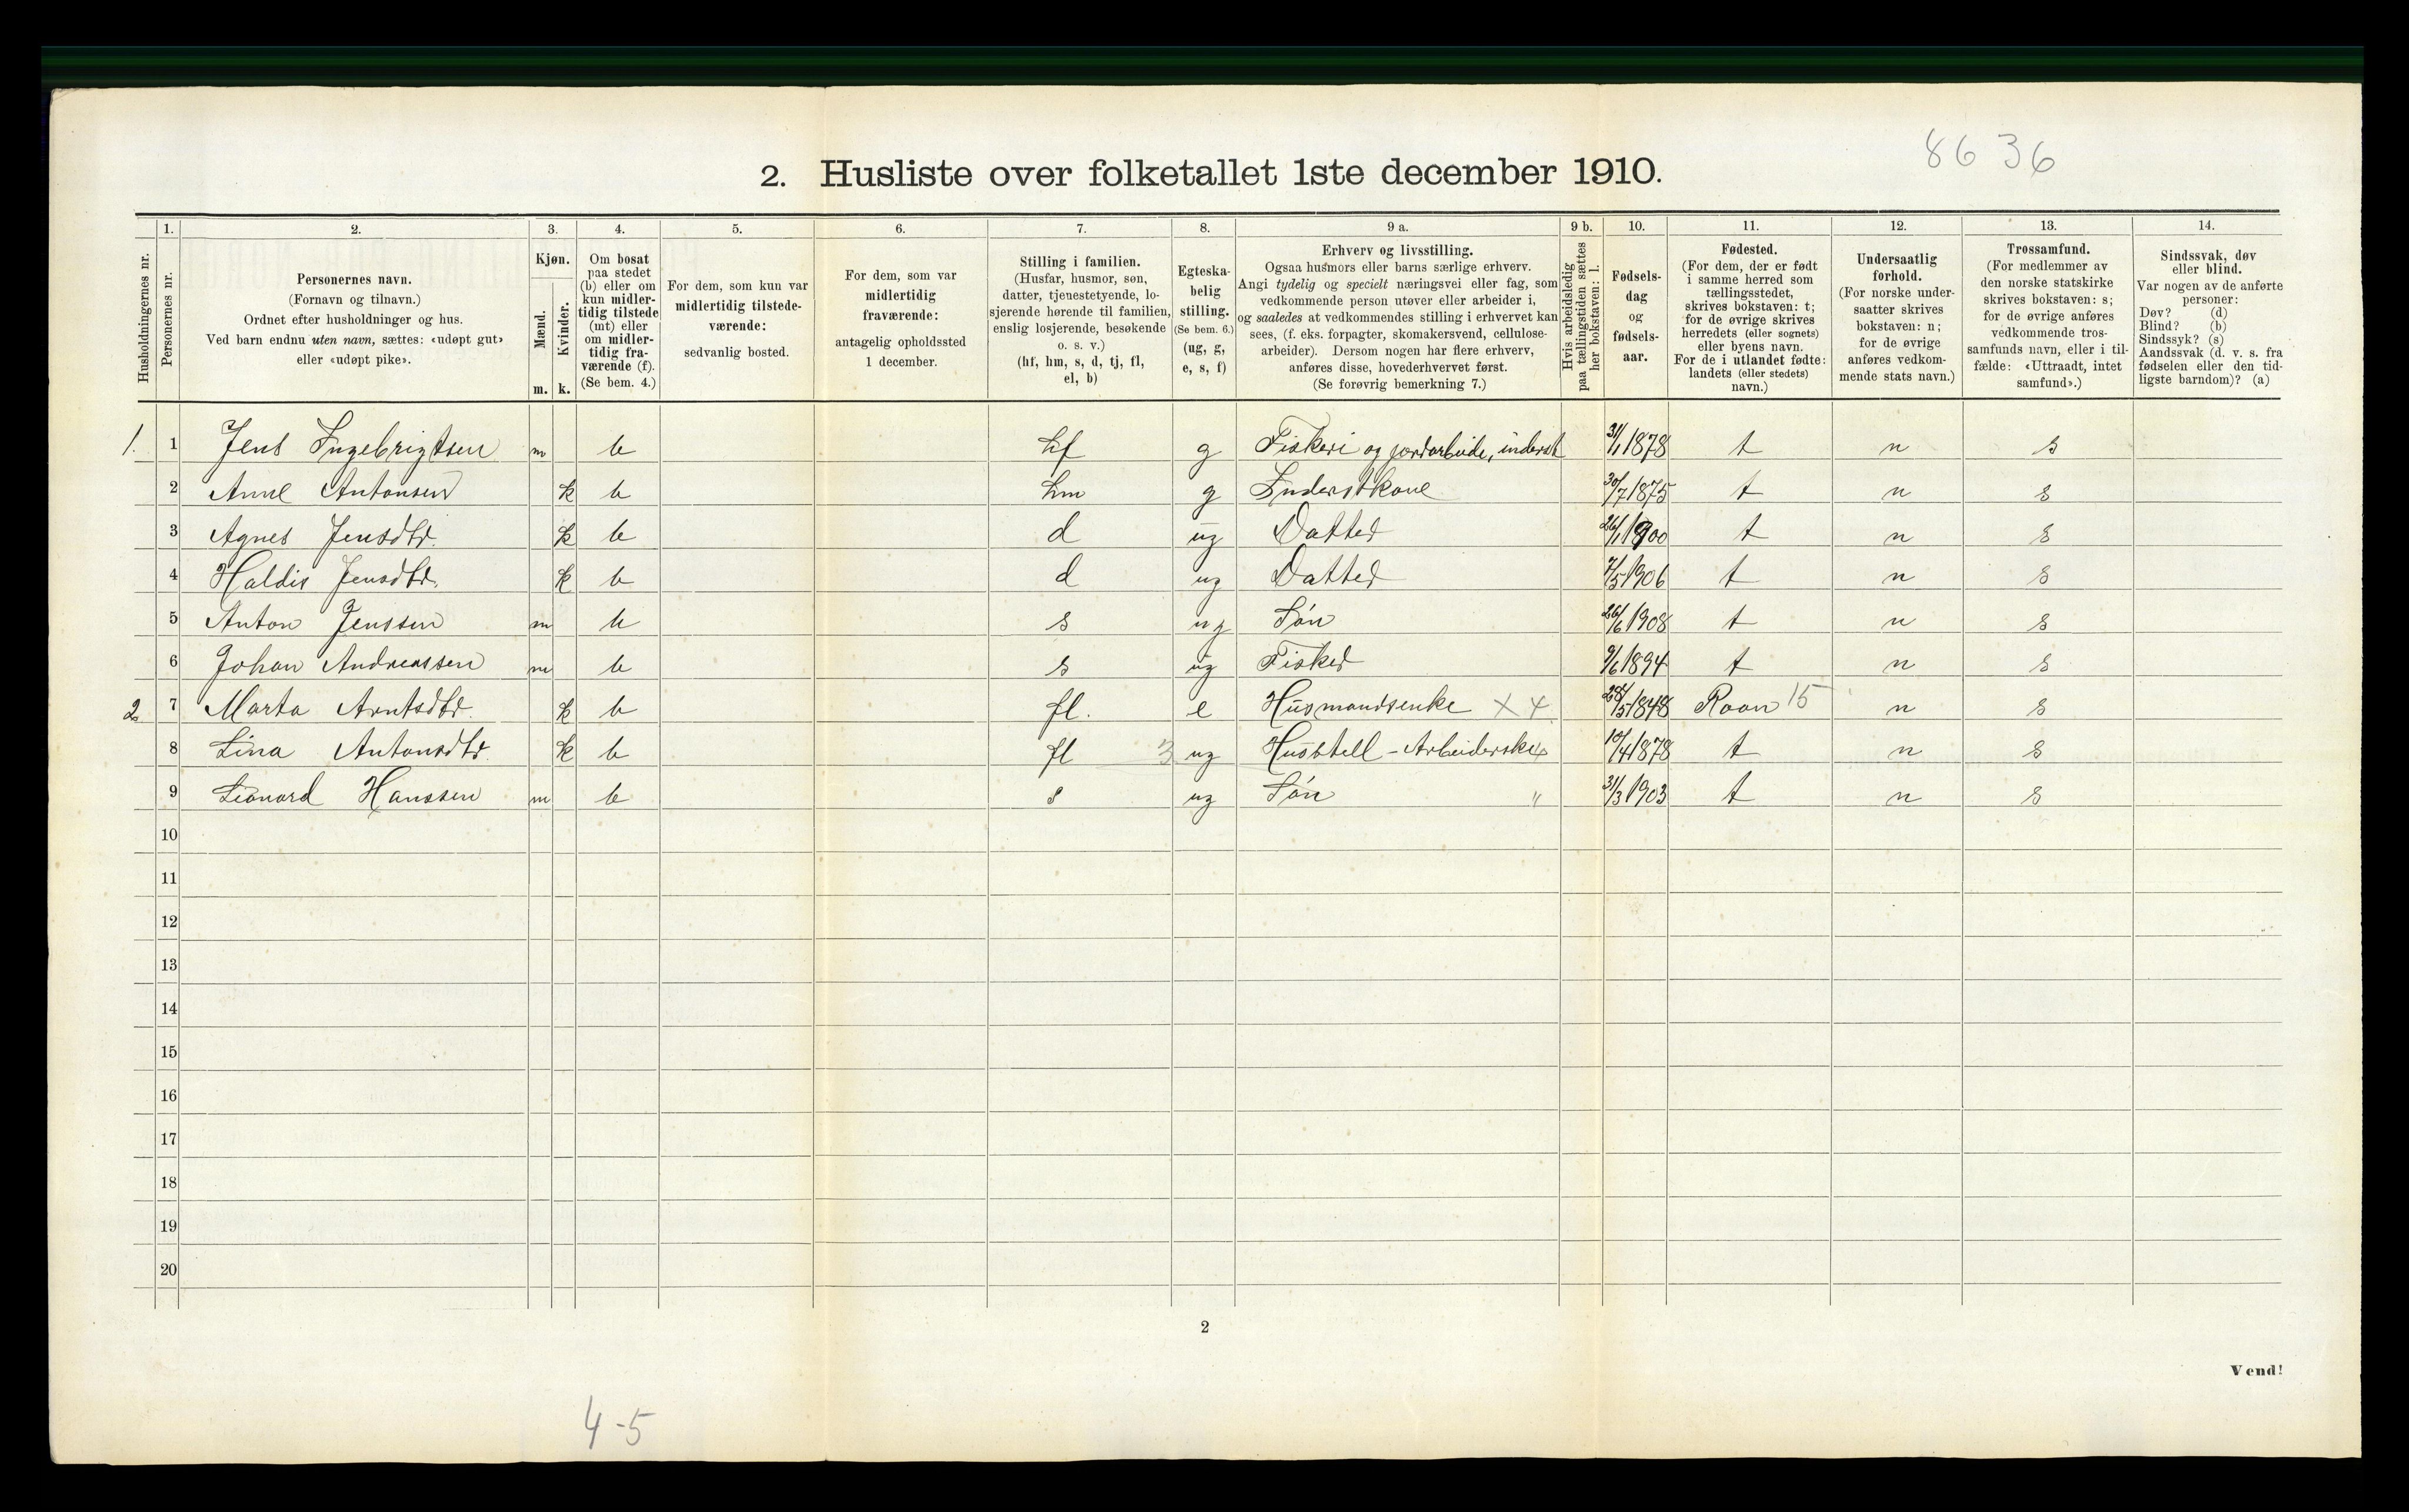 86 36
2. Husliste over folketallet 1ste december 1910.
Husholdningernes nr.
1. Personernes nr.
2. Personernes navn.
(Fornavn og tilnavn.)
Ordnet efter husholdninger og hus.
Ved barn endnu uten navn, sættes: «udøpt gut»
eller «udøpt pike».
3. Kjøn.
Mænd. m.
Kvinder. k.
4. Om bosat
paa stedet
(b) eller om
kun midler-
tidig tilstede
(mt) eller
om midler-
tidig fra-
værende (f).
(Se bem. 4.)
5. For dem, som kun var
midlertidig tilstede-
værende:
sedvanlig bosted.
6. For dem, som var
midlertidig
fraværende:
antagelig opholdssted
1 december.
7. Stilling i familien.
(Husfar, husmor, søn,
datter, tjenestetyende, lo-
sjerende hørende til familien,
enslig losjerende, besøkende
o. s. v.)
(hf, hm, s, d, tj, fl,
el, b)
8. Egteska-
belig
stilling.
(Se bem. 6.)
(ug, g,
e, s, f)
9 a. Erhverv og livsstilling.
Ogsaa husmors eller barns særlige erhverv.
Angi tydelig og specielt næringsvei eller fag, som
vedkommende person utøver eller arbeider i,
og saaledes at vedkommendes stilling i erhvervet kan
sees, (f. eks. forpagter, skomakersvend, cellulose-
arbeider). Dersom nogen har flere erhverv,
anføres disse, hovederhvervet først.
(Se forøvrig bemerkning 7.)
9 b. Hvis arbeidsledig
paa tællingstiden sættes
her bokstaven: l.
10. Fødsels-
dag
og
fødsels-
aar.
11. Fødested.
(For dem, der er født
i samme herred som
tællingsstedet,
skrives bokstaven: t;
for de øvrige skrives
herredets (eller sognets)
eller byens navn.
For de i utlandet fødte:
landets (eller stedets)
navn.)
12. Undersaatlig
forhold.
(For norske under-
saatter skrives
bokstaven: n;
for de øvrige
anføres vedkom-
mende stats navn.)
13. Trossamfund.
(For medlemmer av
den norske statskirke
skrives bokstaven: s;
for de øvrige anføres
vedkommende tros-
samfunds navn, eller i til-
fælde: «Uttraadt, intet
samfund».)
14. Sindssvak, døv
eller blind.
Var nogen av de anførte
personer:
Døv? (d)
Blind? (b)
Sindssyk? (s)
Aandssvak (d. v. s. fra
fødselen eller den tid-
ligste barndom)? (a)
1. 1 Jens Ingebrigtsen m b hf g Fiskeri og jordarbeide, inderst 31/1 1878 t n s
2 Anne Antonsen k b hm g Inderstkone 30/7 1875 t n s
3 Agnes Jensdtr. k b d ug Datter 26/1 1900 t n s
4 Haldis Jensdtr. k b d ug Datter 7/5 1906 t n s
5 Anton Jenssen m b s ug Søn 26/6 1908 t n s
6 Johan Andreassen m b s ug Fisker 9/6 1894 t n s
2. 7 Marta Arntsdtr. k b fl. e Husmandsenke X 4 28/5 1848 Roan 15 n s
8 Lina Antonsdtr. k b fl 3 ug Husstell - Arbeiderske 10/4 1878 t n s
9 Leonard Hanssen m b s ug Søn " 31/3 1903 t n s
10
11
12
13
14
15
16
17
18
19
20
2
Vend!
4-5